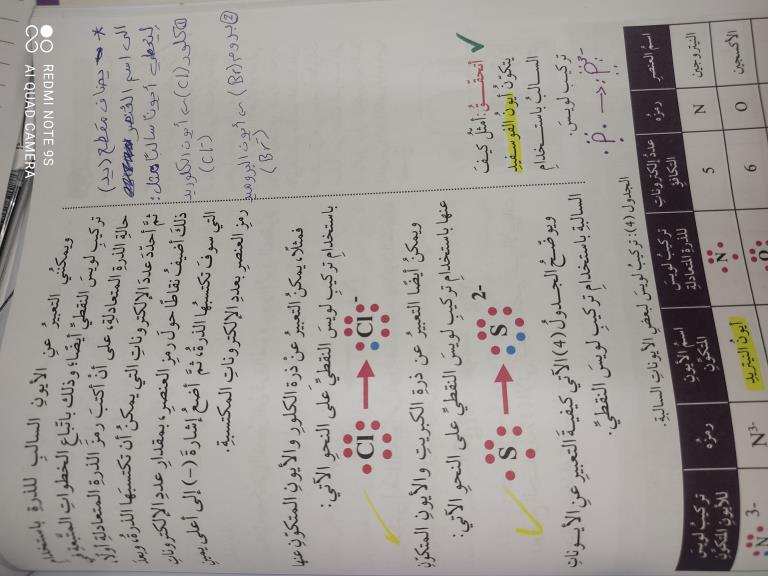 ويمكنُني التعبيرُ عنِ الأيونِ السالبِ للذرةِ باستخدامِ
تركيبِ لويسَ النقطيِّ أيضًا؛ وذلكَ باتّباعِ الخطواتِ المتبعةِ في
حالةِ الذرةِ المتعادلةِ، على أنْ أكتبَ رمزَ الذرةِ المتعادلةِ أولًا،
ثمَّ أحدّدَ عددَ الإلكتروناتِ التي يمكنُ أنْ تكتسبَها الذرةُ، وبعدَ
ذلكَ أضيفُ نقاطًا حولَ رمزِ العنصرِ، بمقدارِ عددِ الإلكتروناتِ
التي سوفَ تكتسبُها الذرةُ، ثمَّ أضعُ إشارةَ (-) إلى أعلى يمينِ
رمزِ العنصرِ بعددِ الإلكتروناتِ المكتسبةِ.
فمثلًا، يمكنُ التعبيرُ عنْ ذرةِ الكلورِ والأيونِ المتكوّنِ عنها
باستخدامِ تركيبِ لويسَ النقطيِّ على النحوِ الآتي:
Cl → Cl -
ويمكنُ أيضًا التعبيرُ عن ذرةِ الكبريتِ والأيونِ المتكوّنِ
عنها باستخدامِ تركيبِ لويسَ النقطيِّ على النحوِ الآتي:
S → S 2-
ويوضّحُ الجدولُ (4) الآتي كيفيةَ التعبيرِ عنِ الأيوناتِ
السالبةِ باستخدامِ تركيبِ لويسَ النقطيِّ.
* يضاف مقطع (يد)
الى اسم العنصر
ليعطي أيونًا سالبًا مثل:
① كلور (Cl) ← أيون الكلوريد
(Cl-)
② بروم (Br) ← أيون البروميد
(Br-)
✓ أتحقَّقُ: أمثّلُ كيفَ
يتكوّنُ أيونُ الفوسفيدِ
السالبُ باستخدامِ
تركيبِ لويسَ.
P → P 3-
الجدولُ (4): تركيبُ لويسَ لبعضِ الأيوناتِ السالبةِ.
اسمُ العنصرِ رمزُه عددُ إلكتروناتِ التكافؤِ تركيبُ لويسَ للذرةِ المتعادلةِ اسمُ الأيونِ المتكوّنِ رمزُه تركيبُ لويسَ للأيونِ المتكوّنِ
النيتروجين N 5 N أيونُ النيتريدِ N3- N 3-
الأكسجين O 6 O
REDMI NOTE 9S
AI QUAD CAMERA